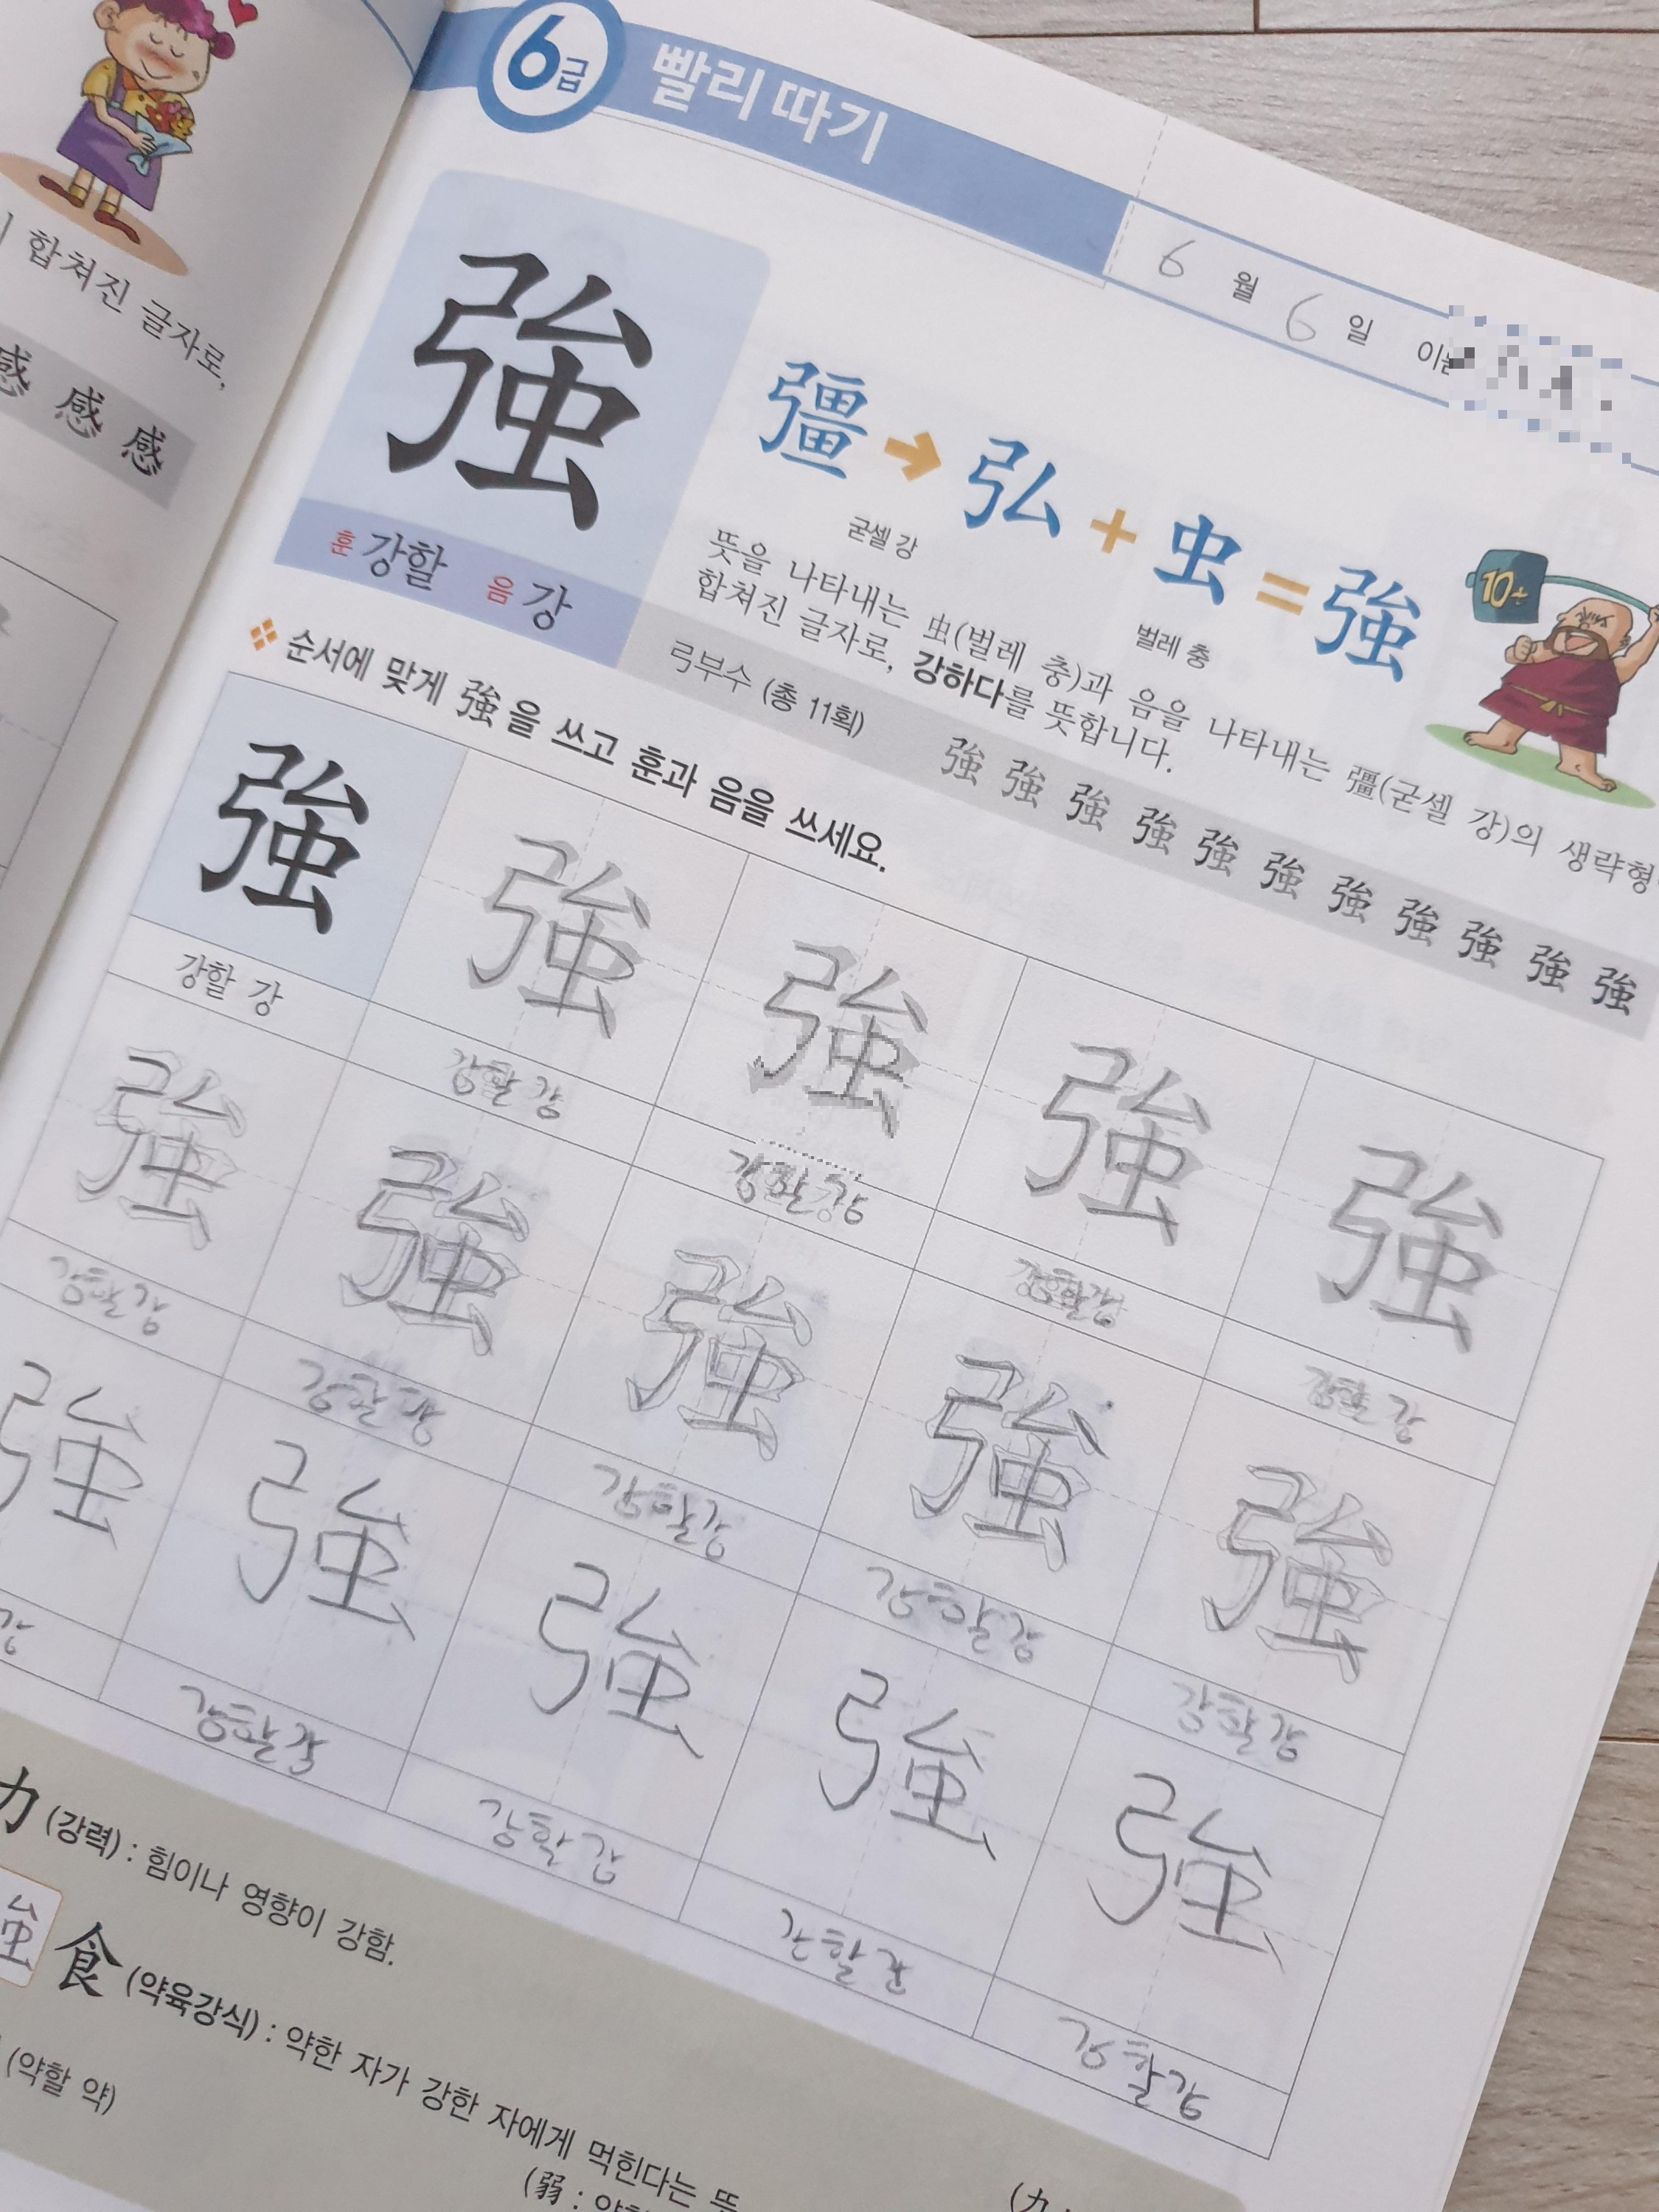 합쳐진 글자로,
感 感 感
6급 빨리 따기
6 월 6 일
強
훈 강할 음 강
彊 → 弘 + 虫 = 強
굳셀 강
벌레 충
뜻을 나타내는 虫(벌레 충)과 음을 나타내는 彊(굳셀 강)의 생략형
합쳐진 글자로, 강하다를 뜻합니다.
弓부수 (총 11획) 強 強 強 強 強 強 強 強 強 強 強
순서에 맞게 強을 쓰고 훈과 음을 쓰세요.
強 強 強 強 強
강할 강 강할 강 강할 강 강할 강 강할 강
強 強 強 強 強
강할 강 강할 강 강할 강 강할 강 강할 강
強 強 強 強 強
강 강할 강 강할 강 강할 강 강할 강
力 (강력) : 힘이나 영향이 강함.
強 食 (약육강식) : 약한 자가 강한 자에게 먹힌다는 뜻
(약할 약)
(弱 :
(力